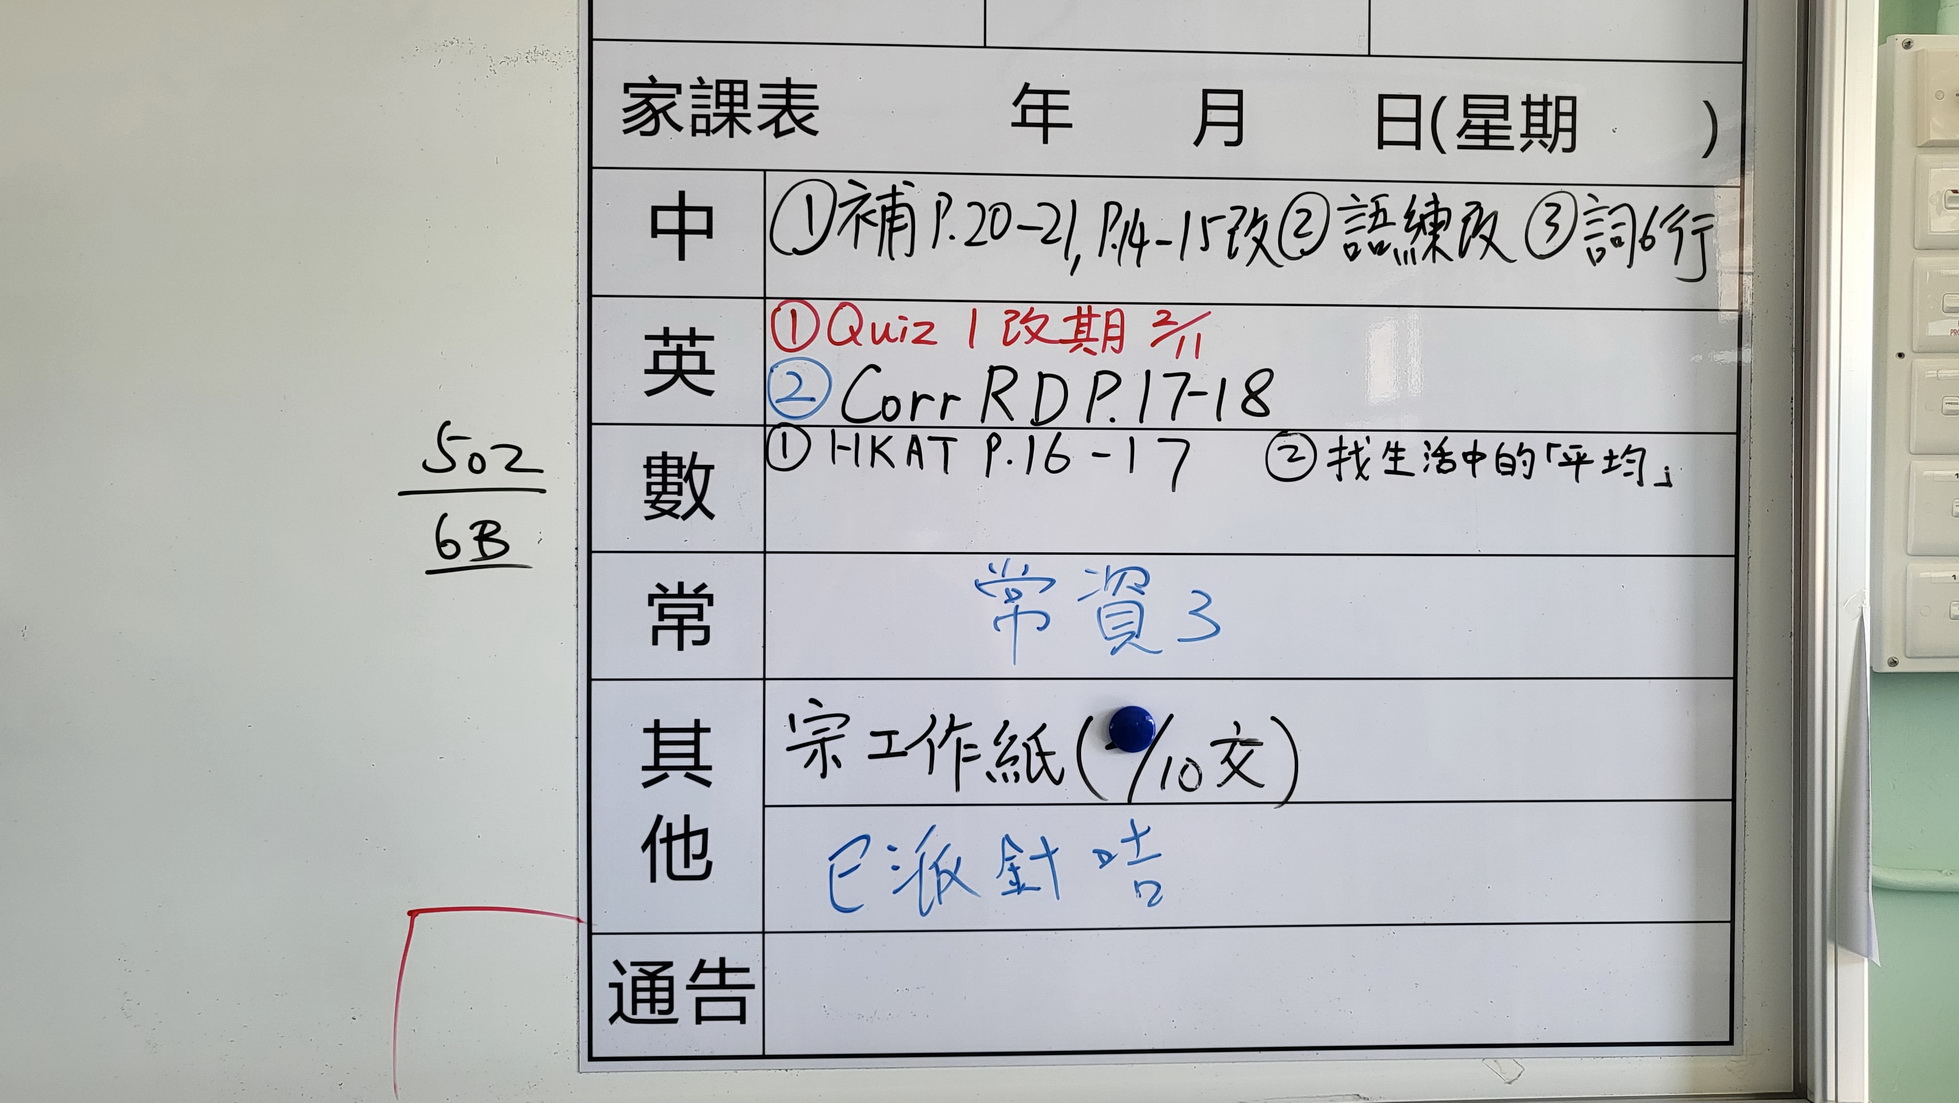 家課表 年 月 日(星期 )
中 ①補P.20-21, P.14-15改②語練改 ③詞6行
英 ①Quiz 1 改期 2/11
②Corr RD P.17-18
數 ①HKAT P.16-17 ②找生活中的「平均」
常 常資3
其他 宗工作紙( /10交)
已派針咭
通告
502
6B